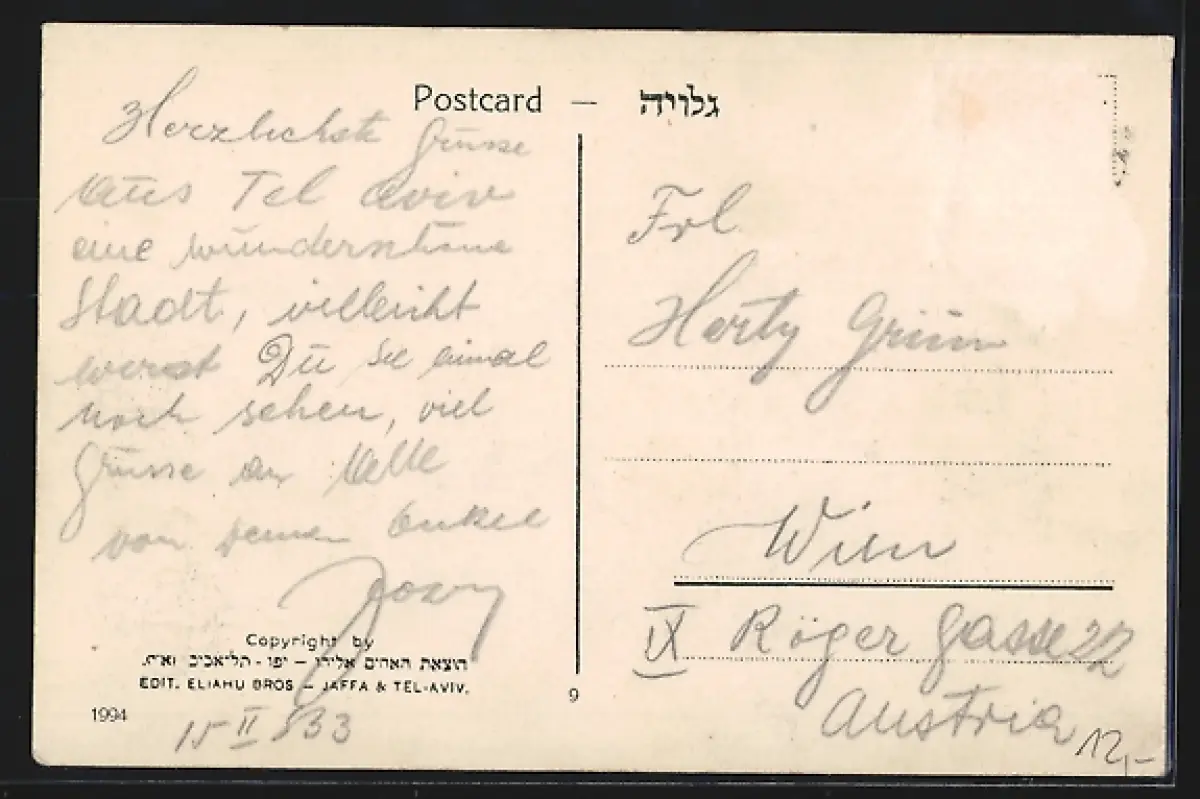 Postcard — גלויה
Herzlichste Grüsse
aus Tel aviv
eine wunderschöne
Stadt, vielleicht
wirst Du sie einmal
noch sehen, viel
Grüsse an Alle
von Deinem Onkel
Copyright by
הוצאת האחים אליהו – יפו - תל־אביב
EDIT. ELIAHU BROS — JAFFA & TEL-AVIV.
1994
15 II 933
9
Frl
Herty Grün
Wien
IX Röger Gasse 22
Austria
12,-